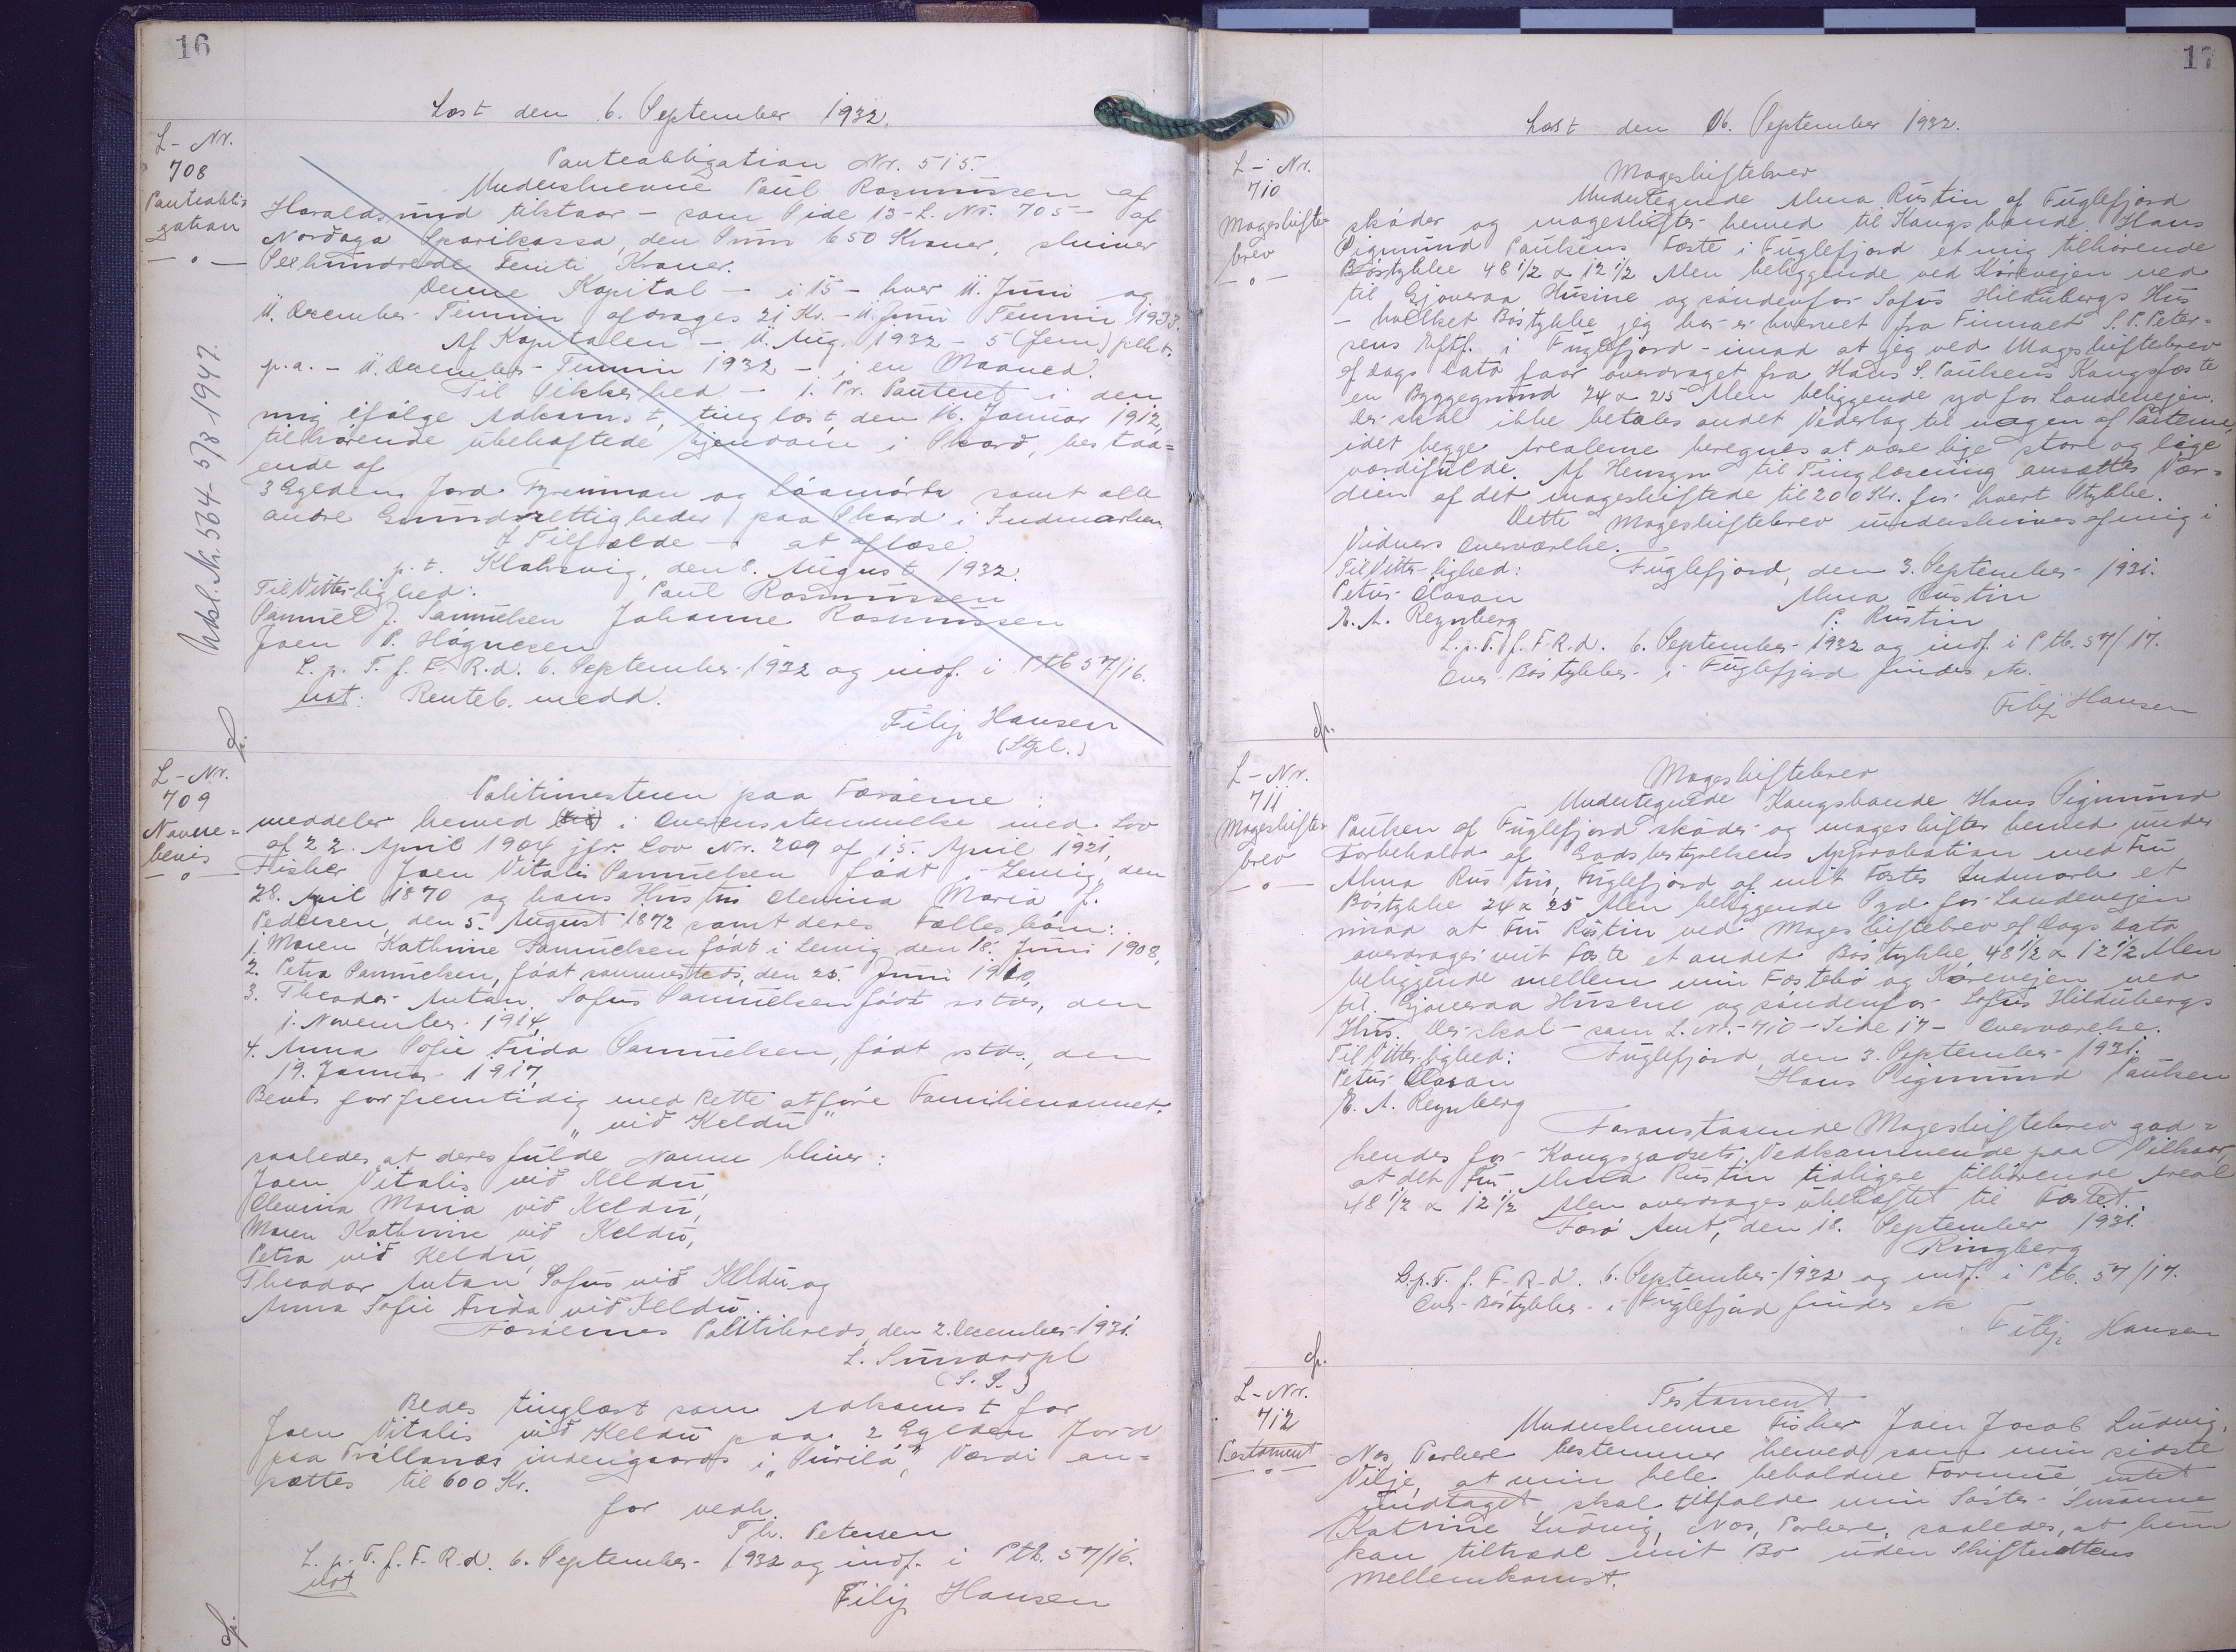 16
Læst den 6. September 1932.
L-Nr.
708
Panteobli-
gation
Udsl. Nr. 564 - 5/8 1947.
Panteobligation Nr. 515.
Underskrevne Paul Rasmussen af
Haraldsund tilstaar - som Side 13 - L. Nr. 705 - af
Nordøga Sparikassa, den Sum 650 Kroner, skriver
Sekshundrede Femti Kroner.
Denne Kapital - i 15 - hver 11. Juni og
11. December Termin afdrages 21 Kr. - 11. Juni Termin 1933.
Af Kapitalen - 11. Aug. 1932 - 5 (fem) pCt.
p.a. - 11. December-Termin 1932 - i en Maaned.
Til Sikkerhed - 1. Pr. Panteret i den
mig ifølge Adkomst, tinglæst den 16. Januar 1912,
tilhørende ubehæftede Ejendom i Skarð, bestaa=
ende af
3 Gylden Jord Fyrimman og Láamørk samt alle
andre Grundrettigheder paa Skard i Indmarken.
I Tilfælde - at aflæse.
p. t. Klaksvig, den 8. August 1932.
Til Vitterlighed: Paul Rasmussen
Samuel J. Samuelsen Johanne Rasmussen
Joen P. Høgnesen
L. p. T. f. F. R. d. 6. September 1932 og indf. i Ptb 57/16.
not: Renteb. medd.
Filip Hansen
(Stpl.)
L-Nr.
709
Navne=
bevis
Politimesteren paa Færøerne:
meddeler herved i Overensstemmelse med Lov
af 22. April 1904 jfr. Lov Nr. 209 af 15. April 1921,
Fisker Joen Vitalis Samuelsen født i Lervig, den
28. April 1870 og hans Hustru Clemina Maria f.
Pedersen, den 5. August 1872 samt deres Fællesbørn:
1. Maren Kathrine Samuelsen født i Lervig den 18. Juni 1908,
2. Petra Samuelsen, født sammesteds, den 25. Juni 1910,
3. Theodor Anton Sofus Samuelsen født sstds, den
1. November 1914,
4. Anna Sofie Frida Samuelsen, født sstds, den
19. Januar 1917,
Bevis for fremtidig med Rette at føre Familienavnet
"við Keldu"
saaledes at deres fulde Navne bliver:
Joen Vitalis við Keldu,
Clemina Maria við Keldu,
Maren Kathrine við Keldu,
Petra við Keldu,
Theodor Anton Sofus við Keldu og
Anna Sofie Frida við Keldu.
Færøernes Politikreds, den 2. December 1931.
(S. S.)
Bedes tinglæst som Adkomst for
Joen Vitalis við Keldu paa 2 Gylden Jord
paa Trøllanæs indengaards i "Púrilá", Værdi an=
sættes til 600 Kr.
for vedk.
Th. Petersen
L. p. T. f. F. R. d. 6. September 1932 og indf. i Ptb. 57/16.
not
Filip Hansen
17
Læst den 6. September 1932.
L-Nr.
710
Mageskifte-
brev
Mageskiftebrev
Undertegnede Alma Rustin af Fuglefjord
skøder og mageskifter herved til Kongsbonde Hans
Sigmund Poulsens Fæste i Fuglefjord et mig tilhørende
Bøstykke 48 1/2 x 12 1/2 Alen beliggende ved Kørevejen ved
til Gjoveraa Husine og søndenfor Sofus Hildubergs Hus
- hvilket Bøstykke jeg har erhvervet fra Firmaet S. P. Peter=
sens Eftf. i Fuglefjord - imod at jeg ved Mageskiftebrev
af Dags Dato faar overdraget fra Hans S. Poulsens Kongsfæste
en Byggegrund 24 x 25 Alen beliggende syd for Landevejen.
Der skal ikke betales andet Vederlag til nogen af Parterne,
idet begge Arealerne beregnes at være lige store og lige
værdifulde. Af Hensyn til Tinglæsning ansættes Vær=
dien af det mageskiftede til 200 Kr. for hvert Stykke.
Dette Mageskiftebrev underskrives af mig i
Vidners Overværelse.
Til Vitterlighed: Fuglefjord, den 3. September 1931.
Petur Olason Alma Rustin
E. A. Reynberg P. Rustin
L. p. T. f. F. R. d. 6. September 1932 og indf. i Ptb. 57/17.
Over Bøstykker i Fuglefjord findes etc.
Filip Hansen
L-Nr.
711
Mageskifte-
brev
Mageskiftebrev
Undertegnede Kongsbonde Hans Sigmund
Poulsen af Fuglefjord skøder og mageskifter herved under
Forbehold af Godsbestyrelsens Approbation med Fru
Alma Rustin, Fuglefjord af mit Fæstes Indmark et
Bøstykke 24 x 25 Alen beliggende Syd for Landevejen
imod at Fru Rustin ved Mageskiftebrev af Dags Dato
overdrager mit Fæste et andet Bøstykke, 48 1/2 x 12 1/2 Alen
beliggende mellem min Fæstebø og Kørevejen ved
til Gjoveraa Husene og søndenfor Sofus Hildubergs
Hus. Der skal - som L. Nr. - 710 - Side 17 - Overværelse.
Til Vitterlighed: Fuglefjord, den 3. September 1931.
Petur Olason Hans Sigmund Poulsen
E. A. Reynberg
Foranstaaende Mageskiftebrev god=
kendes for Kongsgodsets Vedkommende paa Vilkaar,
at det Fru Alma Rustin tidligere tilhørende Areal
48 1/2 x 12 1/2 Alen overdrages ubehæftet til Fæstet.
Færø Amt, den 18. September 1931.
Ringberg
L. p. T. f. F. R. d. 6. September 1932 og indf. i Ptb. 57/17.
Over Bøstykker i Fuglefjord findes etc
Filip Hansen
L-Nr.
712
Testament
Testament
Underskrevne Fisker Joen Jacob Ludvig,
Nes, Porkere bestemmer herved som min sidste
Vilje, at min hele beholdne Formue, intet
undtaget, skal tilfalde min Søster Susanne
Katrine Ludvig, Nes, Porkere, saaledes, at hun
kan tiltræde mit Bo uden Skifterettens
Mellemkomst.